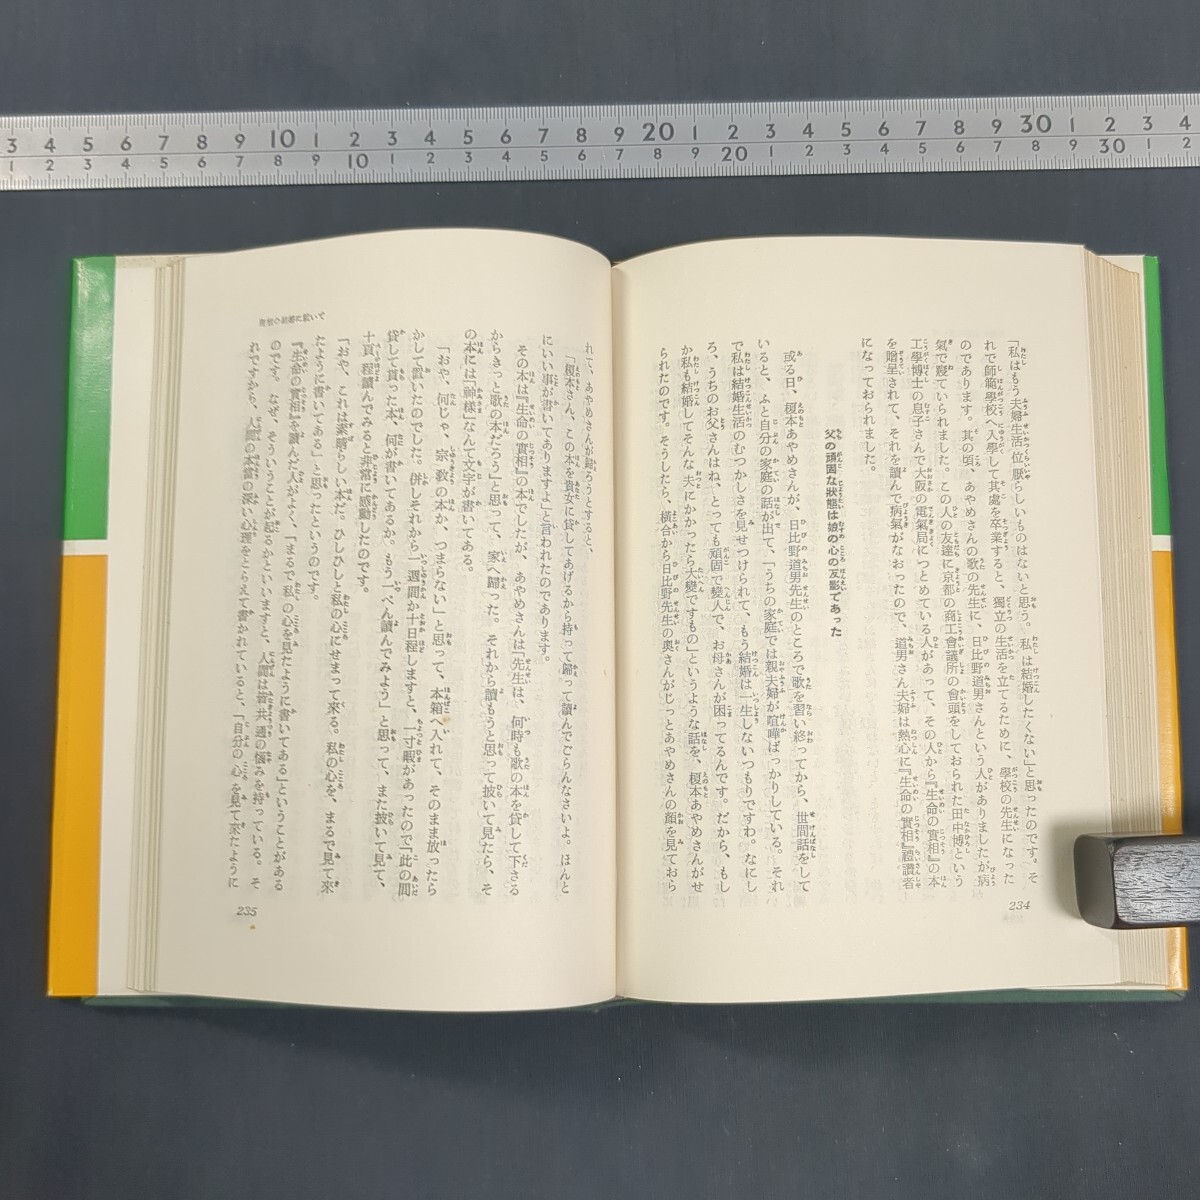 3 4 5 6 7 8 9 10 1 2 3 4 5 6 7 8 9 20 1 2 3 4 5 6 7 8 9 30 1 2 3 4
1 2 3 4 5 6 7 8 9 10 1 2 3 4 5 6 7 8 9 20 1 2 3 4 5 6 7 8 9 30 1 2
「私はもう夫婦生活位厭らしいものはないと思う。私は結婚したくない」と思ったのです。そ
れで師範學校へ入學して其處を卒業すると、獨立の生活を立てるために、學校の先生になった
のであります。其の頃、あやめさんの歌の先生に、日比野道男さんという人がありましたが病
氣で寢ていられました。この人の友達に京都の商工會議所の會頭をしておられた田中博という
工學博士の息子さんで大阪の電氣局につとめている人があって、その人から『生命の實相』の本
を贈呈されて、それを讀んで病氣がなおったので、道男さん夫婦は熱心に『生命の實相』禮讃者
になっておられました。
父の頑固な狀態は娘の心の反影であった
或る日、榎本あやめさんが、日比野道男先生のところで歌を習い終ってから、世間話をして
いると、ふと自分の家庭の話が出て、「うちの家庭では親夫婦が喧嘩ばっかりしている。それ
で私は結婚生活のむつかしさを見せつけられて、もう結婚は一生しないつもりですわ。なにし
ろ、うちのお父さんはね、とっても頑固で變人で、お母さんが困ってるんです。だから、もし
か私も結婚してそんな夫にかかったら大變ですもの」というような話を、榎本あやめさんがせ
られたのです。そうしたら、橫合から日比野先生の奧さんがじっとあやめさんの顏を見ておら
234
れて、あやめさんが歸ろうとすると、
「榎本さん、この本を貴女に貸してあげるから持って歸って讀んでごらんなさいよ。ほんと
にいい事が書いてありますよ」と言われたのであります。
その本は『生命の實相』の本でしたが、あやめさんは「先生は、何時も歌の本を貸して下さる
からきっと歌の本だろう」と思って、家へ歸った。それから讀もうと思って披いて見たら、そ
の本には「神樣」なんて文字が書いてある。
「おや、何じゃ、宗敎の本か、つまらない」と思って、本箱へ入れて、そのまま放ったら
かして置いたのでした。併しそれから一週間か十日程しますと、一寸暇があったので「此の間
貸して貰った本、何が書いてあるか。もう一ぺん讀んでみよう」と思って、また披いて見て、
十頁程讀んでみると非常に感動したのです。
「おや、これは素晴らしい本だ。ひしひしと私の心にせまって來る。私の心を、まるで見て來
たように書いてある」と思ったというのです。
『生命の實相』を讀んだ人がよく、「まるで私の心を見たように書いてある」ということがある
のです。なぜ、そういうことが起るかといいますと、人間は皆共通の惱みを持っている。そ
れですから、人間の本當の深い心理をとらえて書かれていると、「自分の心を見て來たように
235